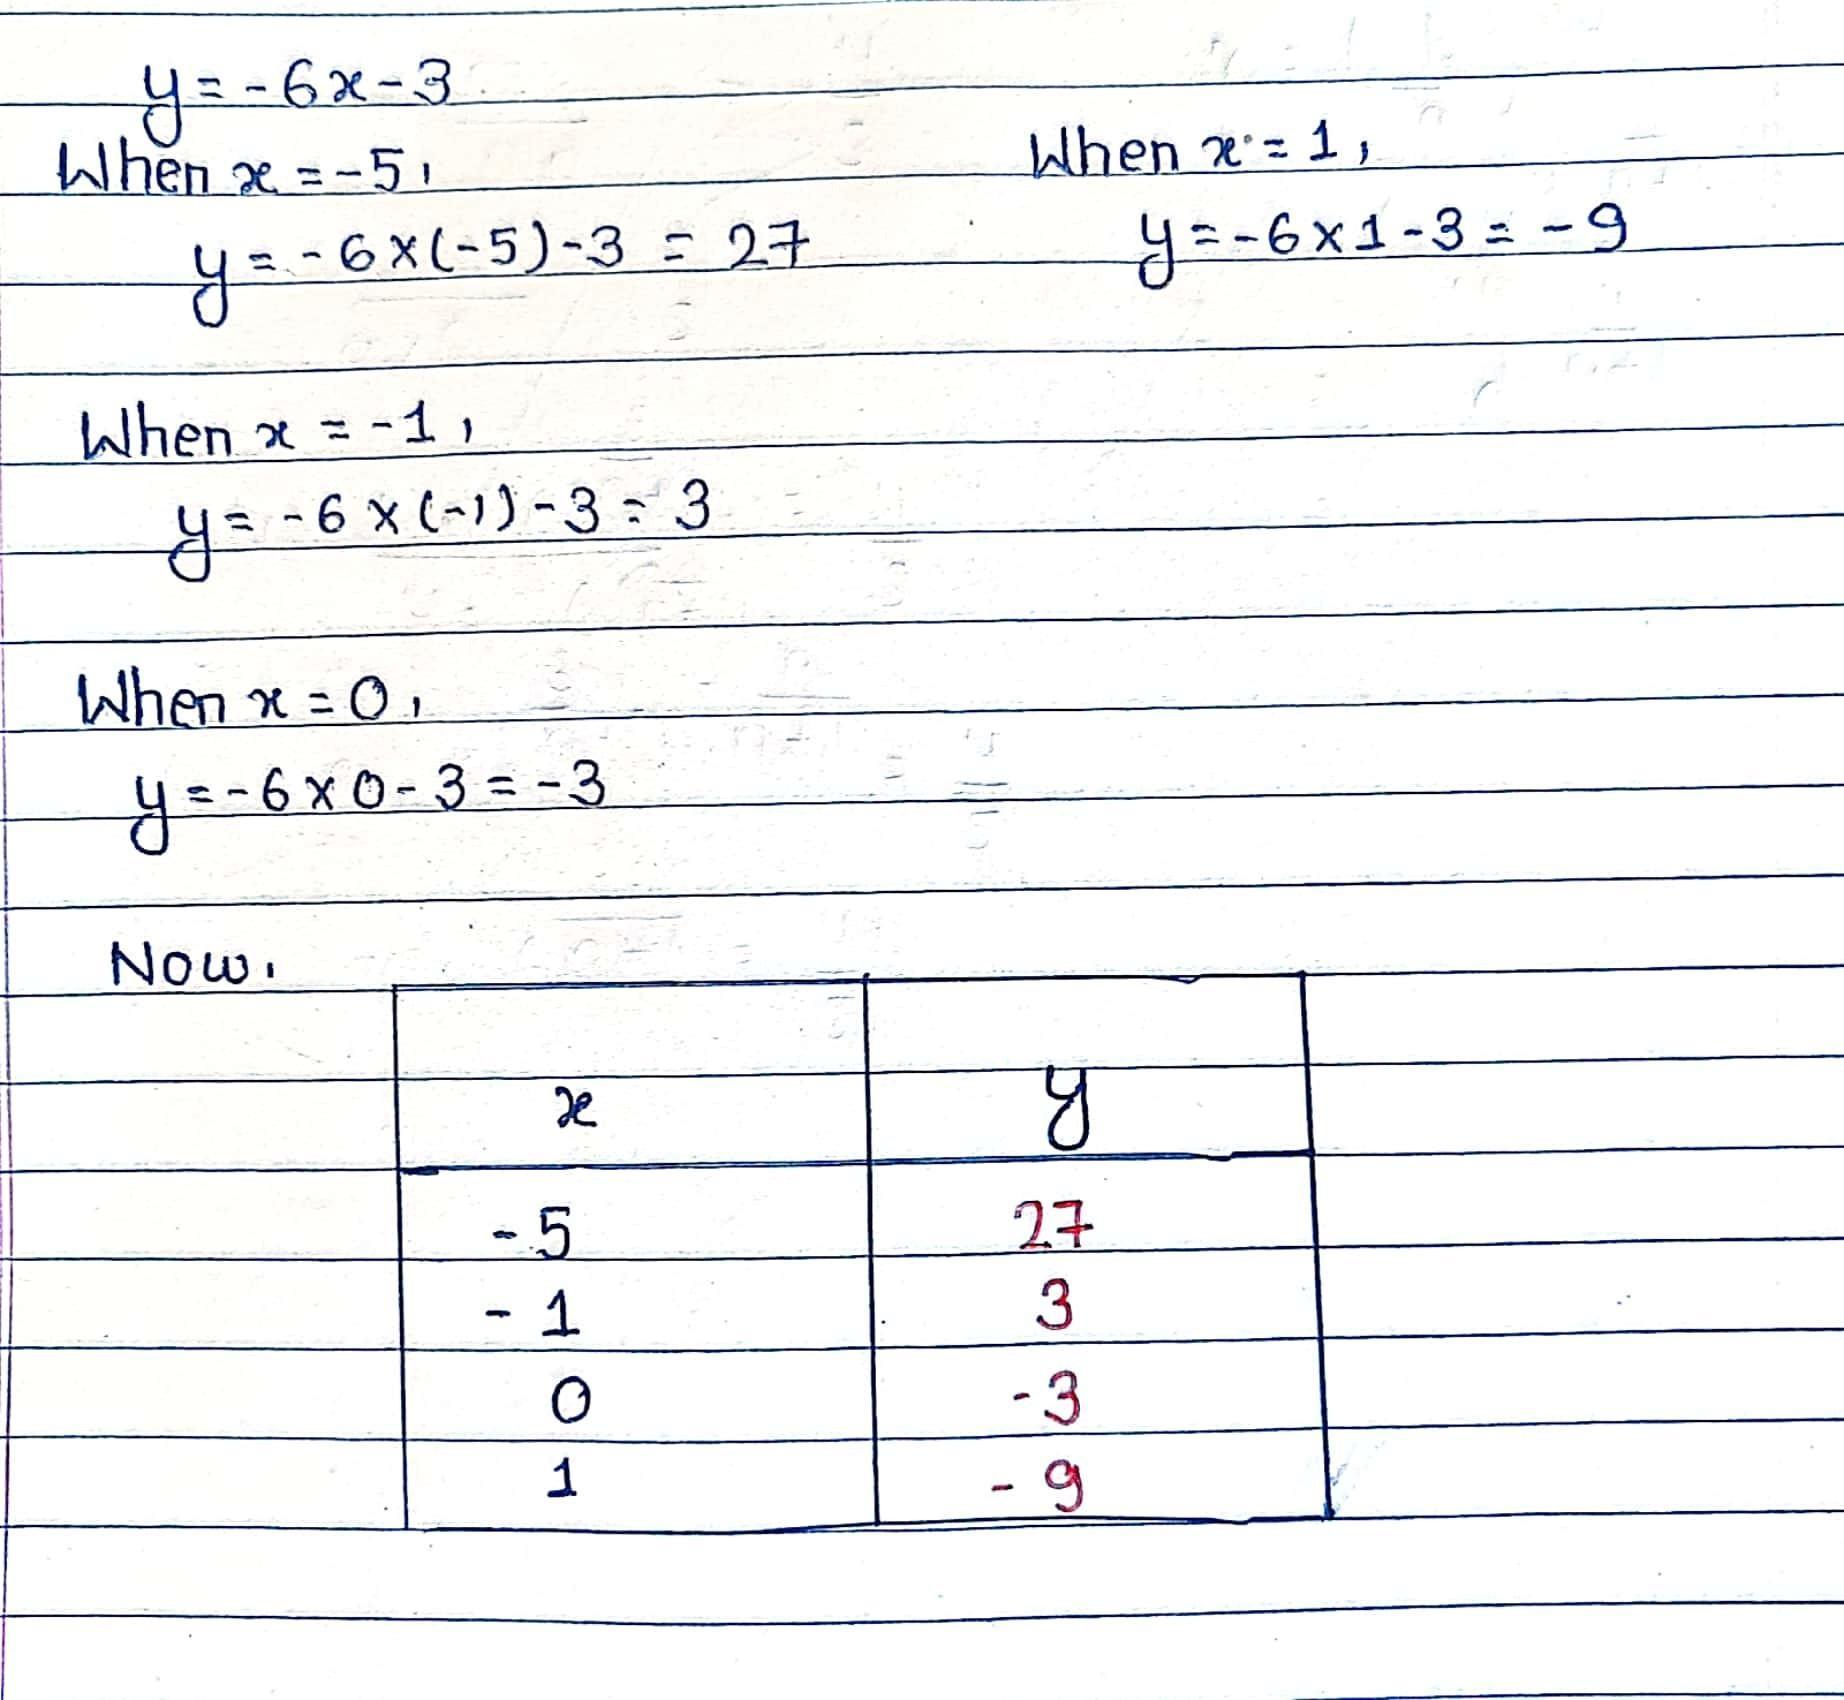 y = -6x-3
When x = -5,
y = -6×(-5)-3 = 27
When x = -1,
y = -6×(-1)-3 = 3
When x = 0,
y = -6×0-3 = -3
When x = 1,
y = -6×1-3 = -9
Now,
x y
-5 27
-1 3
0 -3
1 -9